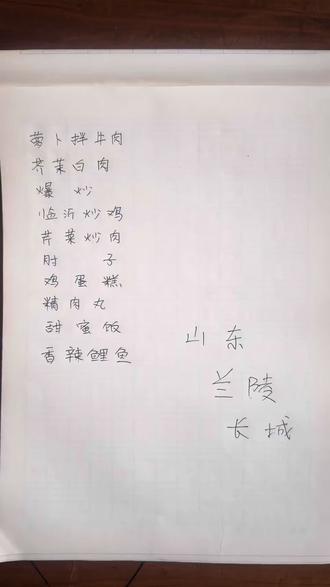 萝卜拌牛肉
芥茉白肉
爆炒
临沂炒鸡
芹菜炒肉
肘子
鸡蛋糕
精肉丸
甜蜜饭
香辣鲤鱼
山东
兰陵
长城